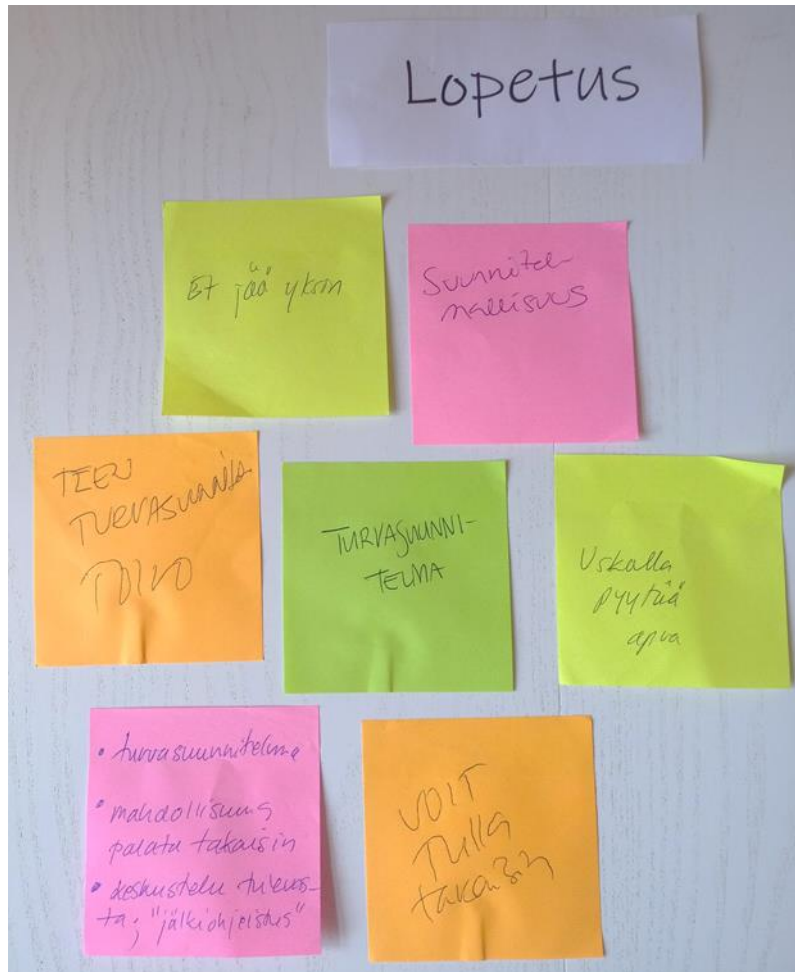 Lopetus
Et jää yksin
Suunnitel-
mallisuus
TEEN
TURVASUUNNITE
TOIVO
TURVASUUNNI-
TELMA
Uskalla
pyytää
apua
• turvasuunnitelma
• mahdollisuus
palata takaisin
• keskustelu tulevas-
ta; "jälkiohjeistus"
VOIT
TULLA
takaisin